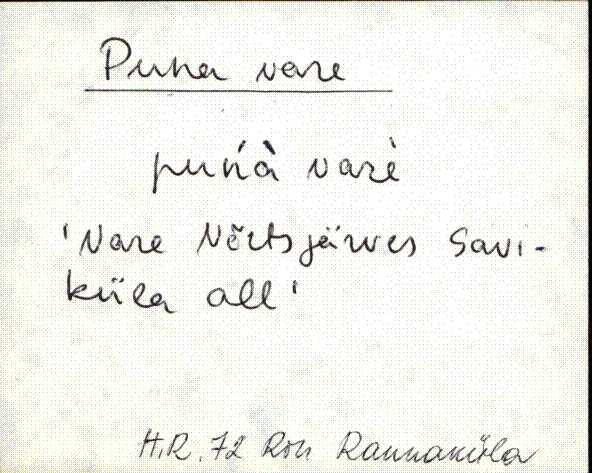 Puha vare
puhà varè
'Vare Võrtsjärves Savi-
küla all'
H.R. 72 Rõn Rannaküla